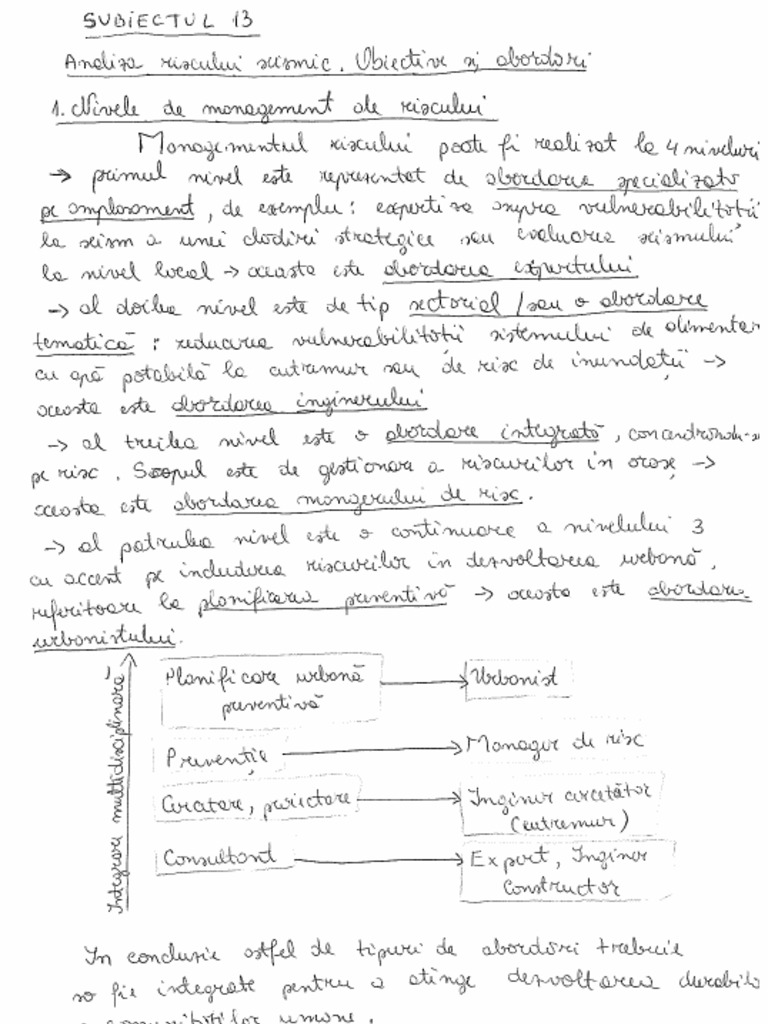 SUBIECTUL 13
Analiza riscului seismic. Obiective și abordări
1. Nivele de management ale riscului
Managementul riscului poate fi realizat la 4 niveluri
→ primul nivel este reprezentat de abordarea specializată
pe amplasament, de exemplu: expertiza asupra vulnerabilității
la seism a unei clădiri strategice sau evaluarea seismului
la nivel local → aceasta este abordarea expertului
→ al doilea nivel este de tip sectorial / sau o abordare
tematică: reducerea vulnerabilității sistemului de alimentar
cu apă potabilă la cutremur sau de risc de inundații →
aceasta este abordarea inginerului
→ al treilea nivel este o abordare integrată,
pe risc. Scopul este de gestionare a riscurilor în orașe →
aceasta este abordarea mangerului de risc.
→ al patrulea nivel este o continuare a nivelului 3
cu accent pe includerea riscurilor în dezvoltarea urbană,
referitoare la planificarea preventivă → aceasta este abordarea
urbanistului.
Integrare multidisciplinară
Planificare urbană
preventivă → Urbanist
Prevenție → Manager de risc
Cercetare, proiectare → Inginer cercetător
(cutremur)
Consultant → Expert, Inginer
Constructor
În concluzie astfel de tipuri de abordări trebuie
să fie integrate pentru a atinge dezvoltarea durabilă
a comunităților umane.